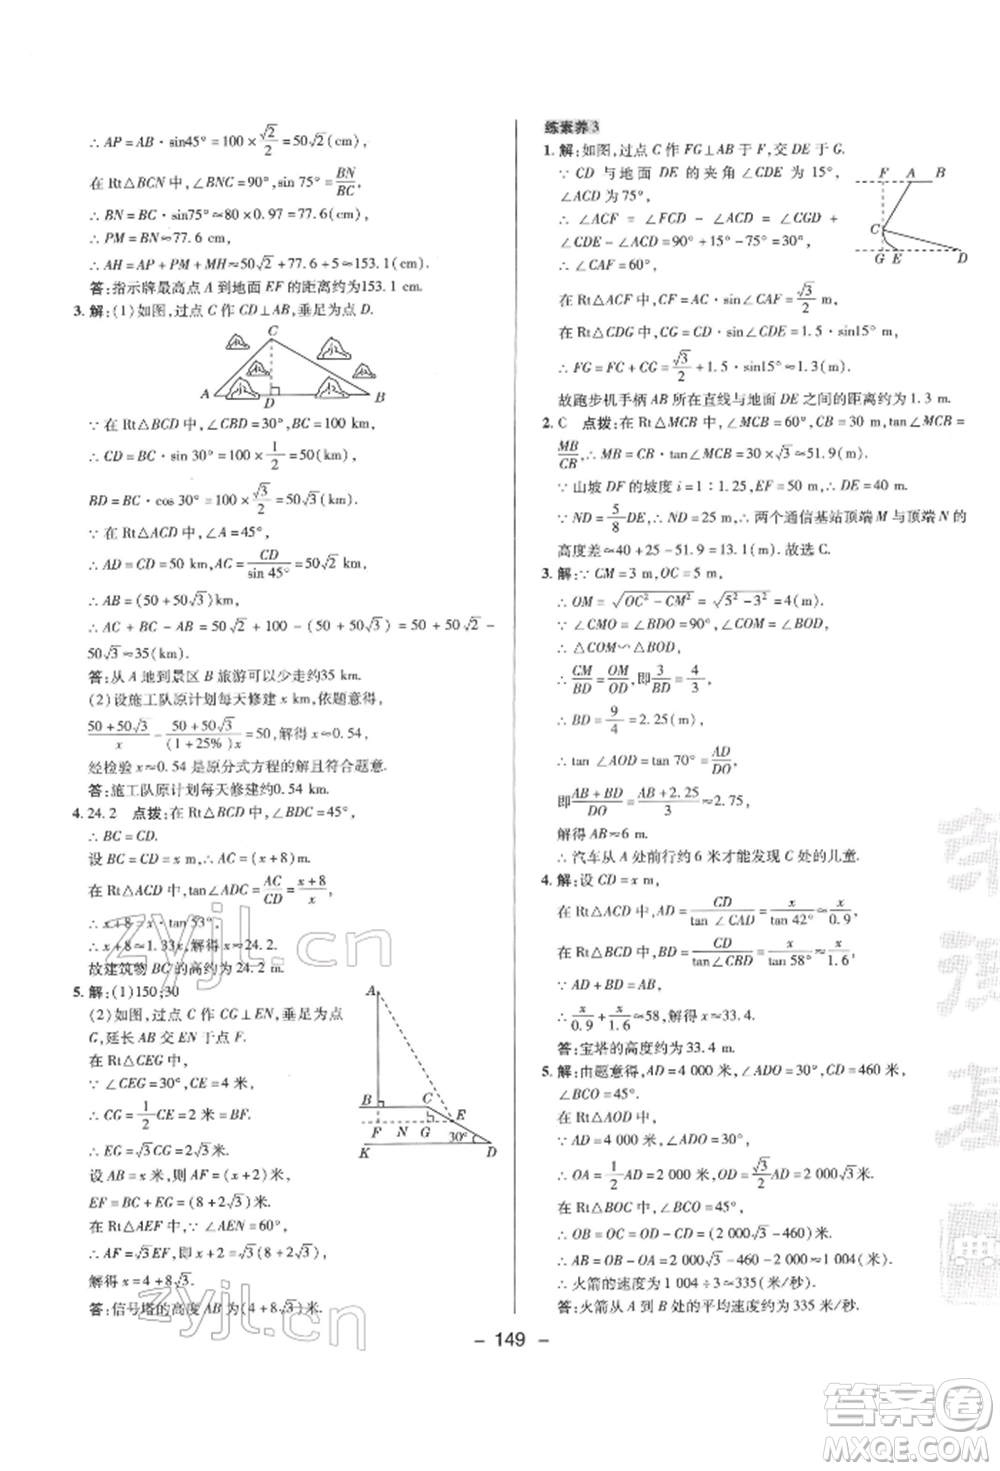 ∴ AP=AB·sin45°=100×√2/2=50√2(cm)
在 Rt△BCN 中,∠BNC=90°,sin 75°=BN/BC,
∴ BN=BC·sin75°≈80×0.97=77.6(cm)
∴ PM=BN≈77.6(cm),
∴ AH=AP+PM+MH≈50√2+77.6+5≈153.1(cm).
答:指示牌最高点 A 到地面 EF 的距离约为153.1 cm.
3. 解:(1)如图,过点 C 作 CD⊥AB,垂足为点 D.
C
A D B
∵ 在 Rt△BCD 中,∠CBD=30°,BC=100 km,
∴ CD=BC·sin 30°=100×1/2=50(km),
BD=BC·cos 30°=100×√3/2=50√3(km).
∵ 在 Rt△ACD 中,∠A=45°,
∴ AD=CD=50 km,AC=CD/sin 45°=50√2 km,
∴ AB=(50+50√3)km,
∴ AC+BC-AB=50√2+100-(50+50√3)=50+50√2-
50√3≈35(km).
答:从 A 地到景区 B 旅游可以少走约35 km.
(2)设施工队原计划每天修建 x km,依题意得,
(50+50√3)/x-(50+50√3)/((1+25%)x)=50,解得 x≈0.54,
经检验 x≈0.54 是原分式方程的解且符合题意.
答:施工队原计划每天修建约0.54 km.
4. 24.2 点拨:在 Rt△BCD 中,∠BDC=45°,
∴ BC=CD.
设 BC=CD=x m,∴ AC=(x+8)m.
在 Rt△ACD 中,tan∠ADC=AC/CD=(x+8)/x,
∴ x+8=x·tan 53°,
∴ x+8≈1.33x,x≈24.2.
故建筑物 BC 的高约为 24.2 m.
5. 解:(1)150;30
(2)如图,过点 C 作 CG⊥EN,垂足为点
G,延长 AB 交 EN 于点 F.
在 Rt△CEG 中,
∵ ∠CEG=30°,CE=4 米,
∴ CG=1/2CE=2 米=BF.
∴ EG=√3CG=2√3(米).
设 AB=x 米,则 AF=(x+2)米,
EF=BC+EG=(8+2√3)米.
在 Rt△AEF 中,∵ ∠AEN=60°,
∴ AF=√3EF,即 x+2=√3(8+2√3),
解得 x=4+8√3,
答:信号塔的高度 AB 为(4+8√3)米.
A
B C E
F N G 30°
K D
练素养3
1. 解:如图,过点 C 作 FG⊥AB 于 F,交 DE 于 G.
∵ CD 与地面 DE 的夹角∠CDE 为 15°,
∠ACD 为 75°,
∴ ∠ACF=∠FCD-∠ACD=∠CGD+
∠CDE-∠ACD=90°+15°-75°=30°,
∴ ∠CAF=60°,
在 Rt△ACF 中,CF=AC·sin∠CAF=√3/2 m,
在 Rt△CDG 中,CG=CD·sin∠CDE=1.5·sin15°,
∴ FG=FC+CG=√3/2+1.5·sin15°≈1.3(m).
故跑步机手柄 AB 所在直线与地面 DE 之间的距离约为 1.3 m.
F A B
C
G E D
2. C 点拨:在 Rt△MCB 中,∠MCB=60°,CB=30 m,tan∠MCB=
MB/CB,∴ MB=CB·tan∠MCB=30×√3≈51.9(m).
∵ 山坡 DF 的坡度 i=1∶1.25,EF=50 m,∴ DE=40 m.
∵ ND=5/8DE,∴ ND=25 m,∴ 两个通信基站顶端 M 与顶端 N 的
高度差≈40+25-51.9=13.1(m).故选 C.
3. 解:∵ CM=3 m,OC=5 m,
∴ OM=√(OC²-CM²)=√(5²-3²)=4(m).
∵ ∠CMO=∠BDO=90°,∠COM=∠BOD,
∴ △COM∽△BOD,
∴ CM/BD=OM/OD,即3/BD=4/3,
∴ BD=9/4=2.25(m),
∴ tan∠AOD=tan 70°=AD/DO,
即(AB+BD)/DO=(AB+2.25)/3≈2.75,
解得 AB≈6 m.
∴ 汽车从 A 处前行约 6 米才能发现 C 处的儿童.
4. 解:设 CD=x m,
在 Rt△ACD 中,AD=CD/tan∠CAD=x/tan 42°≈x/0.9,
在 Rt△CBD 中,BD=CD/tan∠CBD=x/tan 58°≈x/1.6,
∵ AD+BD=AB,
∴ x/0.9+x/1.6≈58,解得 x≈33.4.
答:宝塔的高度约为 33.4 m.
5. 解:由题意得,AD=4 000米,∠ADO=30°,CD=460米,
∠BCO=45°,
∵ 在 Rt△AOD 中,
∵ AD=4 000米,∠ADO=30°,
∴ OA=1/2AD=2 000米,OD=√3/2AD=2 000√3米,
在 Rt△BOC 中,∠BCO=45°,
∴ OB=OC=OD-CD=(2 000√3-460)米,
∴ AB=OB-OA=2 000√3-460-2 000≈1 004(米),
∴ 火箭的速度为 1 004÷3≈335(米/秒).
答:火箭从 A 到 B 处的平均速度约为 335 米/秒.
- 149 -
zyjl.cn
zyjl.cn
答案圈
MXQE.COM